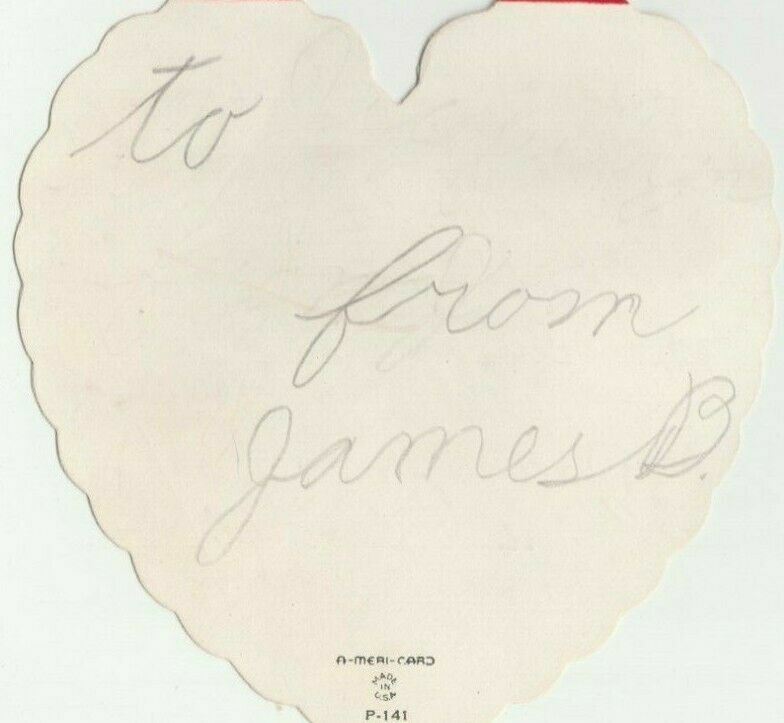 to
from
James B.
A-MERI-CARD
MADE
IN
U.S.A
P-141